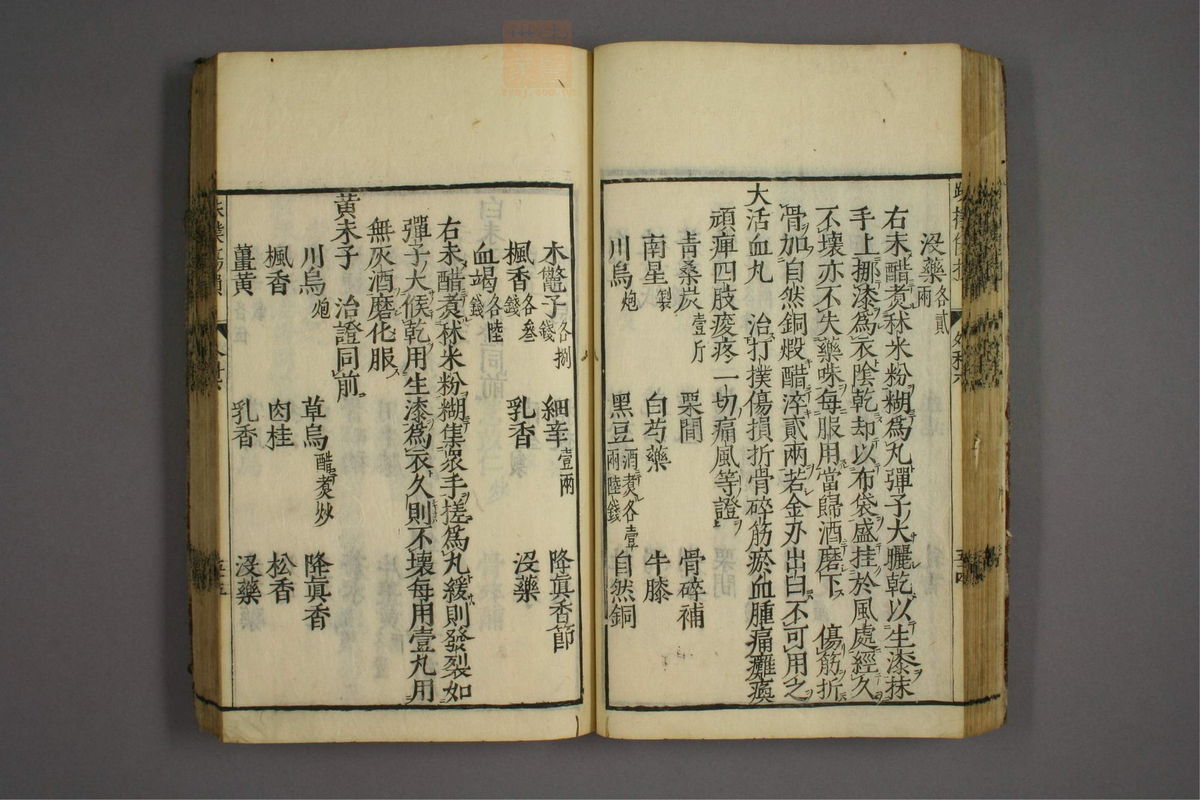 沒藥各貳兩
右末醋煮秫米粉糊爲丸彈子大曬乾以生漆抹
手上挪漆爲衣陰乾却以布袋盛挂於風處經久
不壞亦不失藥味每服用當歸酒磨下　傷筋折
骨加自然銅煅醋淬貳兩若金刃出臼不可用之
大活血丸　治打撲傷損折骨碎筋瘀血腫痛癱瘓
頑痺四肢痠疼一切痛風等證
靑桑炭壹斤　栗間　骨碎補
南星製　白芍藥　牛膝
川烏炮　黑豆酒煮各壹兩陸錢　自然銅
木鼈子各捌錢　細辛壹兩　降眞香節
楓香各叄錢　乳香　沒藥
血竭各陸錢
右末醋煮秫米粉糊集衆手搓爲丸緩則發裂如
彈子大候乾用生漆爲衣久則不壞每用壹丸用
無灰酒磨化服
黃末子　治證同前
川烏炮　草烏醋煮炒　降眞香
楓香　肉桂　松香
薑黃　乳香　沒藥